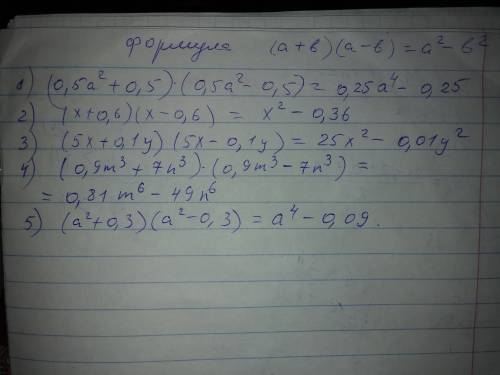 формула (а+в)(а-в) = а²- в²
1) (0,5а²+0,5)·(0,5а²- 0,5)= 0,25а⁴- 0,25
2) (x+0,6)(x-0,6) = x²-0,36
3) (5x+0,1y)(5x-0,1y)= 25x²- 0,01y²
4) (0,9m³+7n³)·(0,9m³-7n³) =
= 0,81m⁶-49n⁶
5) (а²+0,3)(а²-0,3)=а⁴-0,09.